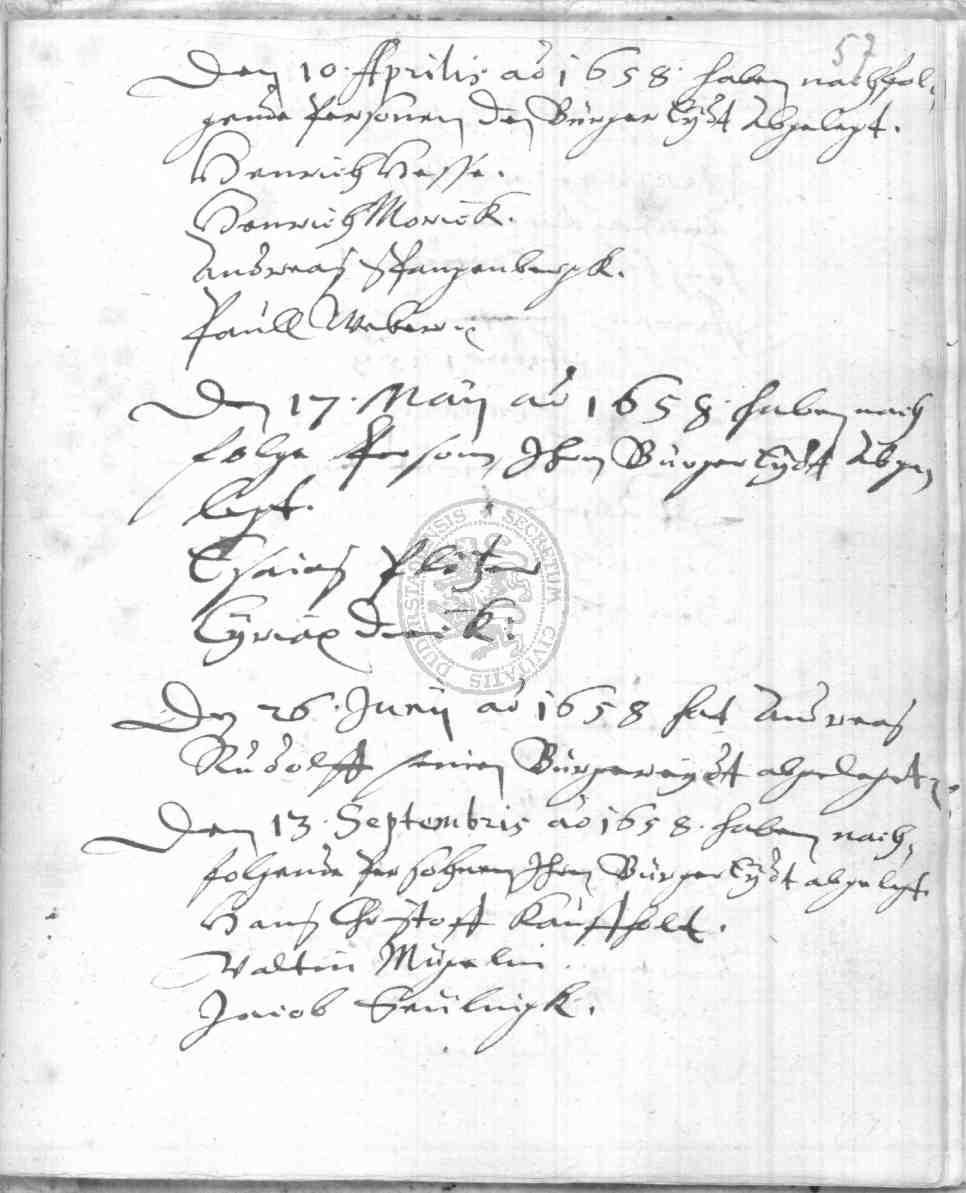 57
Den 10. Aprilis aõ 1658. haben nachfol-
gende Personen den Bürger Eydt abgelegt.
Henrich Hesse.
Henrich Morick.
Andreas Spangenbergk.
Paull Weber
Den 17. Maÿ aõ 1658. haben nach
folge Person Ihren Bürger Eydt abge
legt.
Esaias
Cyriax
Den 26. Junÿ aõ 1658 hat Andreas
Rudolff seinen Bürger eydt abgelegt
Den 13. Septembris aõ 1658. haben nach,
folgende Persohnen Ihren Bürger Eydt abgelegt
Hans Christoff Kauffholt.
Valtin
Jacob
SECRETUM CIVITATIS DUDERSTADENSIS